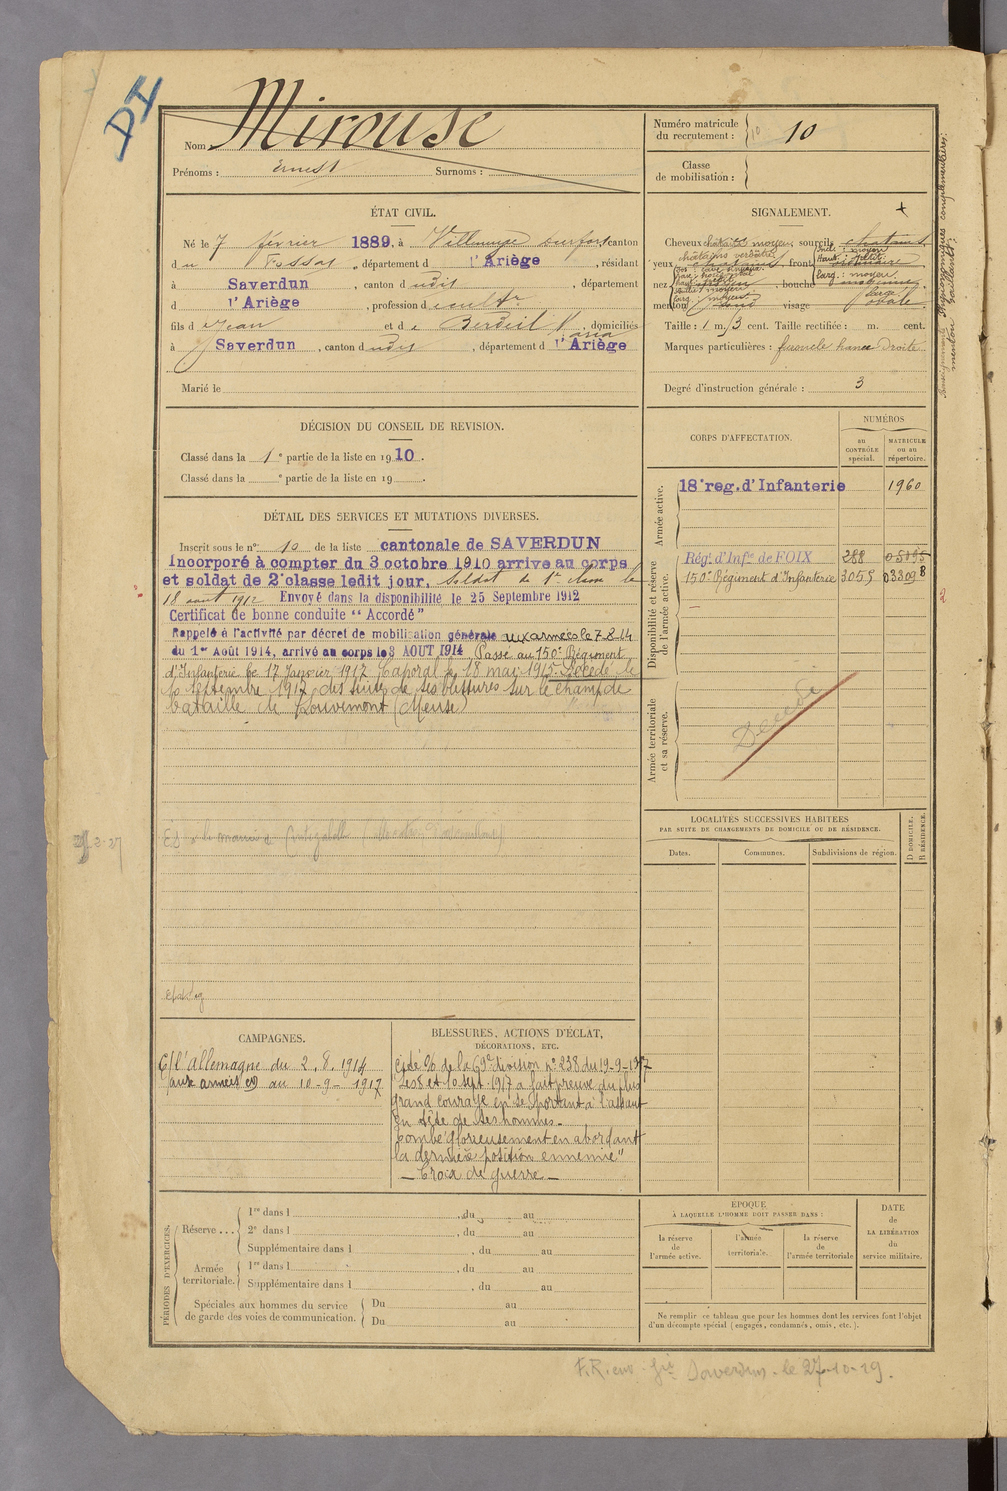 DI
Nom Mirouse
Prénoms : Ernest Surnoms :
Numéro matricule
du recrutement : 10
Classe
de mobilisation :
ÉTAT CIVIL.
Né le 7 février 1889, à Villeneuve durfort canton
du Fossat, département d l'Ariège, résidant
à Saverdun, canton d udit, département
d l'Ariège, profession d ecultr
fils d e Jean et d e Berdeil, domiciliés
à Saverdun, canton d udit, département d l'Ariège
Marié le
SIGNALEMENT.
Cheveux chatains moyen, sourcils chatains
yeux chatains verdatre, front
nez, bouche moyenne
menton rond visage ovale
large
Taille : 1 m. 73 cent. Taille rectifiée : m. cent.
Marques particulières : furoncle hanche Droite
Degré d'instruction générale : 3
Renseignements physionomiques complémentaires:
menton saillant;
DÉCISION DU CONSEIL DE REVISION.
Classé dans la 1e partie de la liste en 1910.
Classé dans la e partie de la liste en 19 .
CORPS D'AFFECTATION.
NUMÉROS
au CONTRÔLE spécial.
MATRICULE ou au répertoire.
Armée active.
18e reg. d'Infanterie 1960
Disponibilité et réserve de l'armée active.
Régt d'Infie de FOIX 288 05095
150e Régiment d'Infanterie 3055 033098
Armée territoriale et sa réserve.
Décédé
DÉTAIL DES SERVICES ET MUTATIONS DIVERSES.
Inscrit sous le n° 10 de la liste cantonale de SAVERDUN
Incorporé à compter du 3 octobre 1910 arrivé au corps
et soldat de 2e classe ledit jour. Soldat de 1re classe le
18 aout 1912 Envoyé dans la disponibilité le 25 Septembre 1912
Certificat de bonne conduite "Accordé"
Rappelé à l'activité par décret de mobilisation générale aux armées le 7-8-14
du 1er Août 1914, arrivé au corps le 3 AOUT 1914 Passé au 150e Régiment
d'Infanterie le 17 Janvier 1917 Caporal le 18 mai 1915. Décédé le
10 septembre 1917 des suites de ses blessures sur le champ de
bataille de Louvemont (Meuse)
LOCALITÉS SUCCESSIVES HABITÉES
PAR SUITE DE CHANGEMENTS DE DOMICILE OU DE RÉSIDENCE.
Dates. Communes. Subdivisions de région. D DOMICILE. R RÉSIDENCE.
CAMPAGNES.
C/ l'allemagne du 2.8.1914
(aux armées) au 10-9-1917
BLESSURES, ACTIONS D'ÉCLAT,
DÉCORATIONS, ETC.
Cité % de la 69e division n° 238 du 19-9-1917
"Les 8 et 10 sept. 1917 a fait preuve du plus
grand courage en se portant à l'assaut
en tête de ses hommes.
Tombé glorieusement en abordant
la dernière position ennemie"
— Croix de guerre. —
PÉRIODES D'EXERCICES.
Réserve... 1re dans l , du au
2e dans l , du au
Supplémentaire dans l , du au
Armée territoriale. 1re dans l , du au
Supplémentaire dans l , du au
Spéciales aux hommes du service
de garde des voies de communication.
Du au
Du au
EPOQUE
À LAQUELLE L'HOMME DOIT PASSER DANS :
la réserve de l'armée active.
l'armée territoriale.
la réserve de l'armée territoriale
DATE
de
LA LIBÉRATION
du
service militaire.
Ne remplir ce tableau que pour les hommes dont les services font l'objet
d'un décompte spécial (engagés, condamnés, omis, etc.).
F.R. env. Saverdun. le 27-10-19.